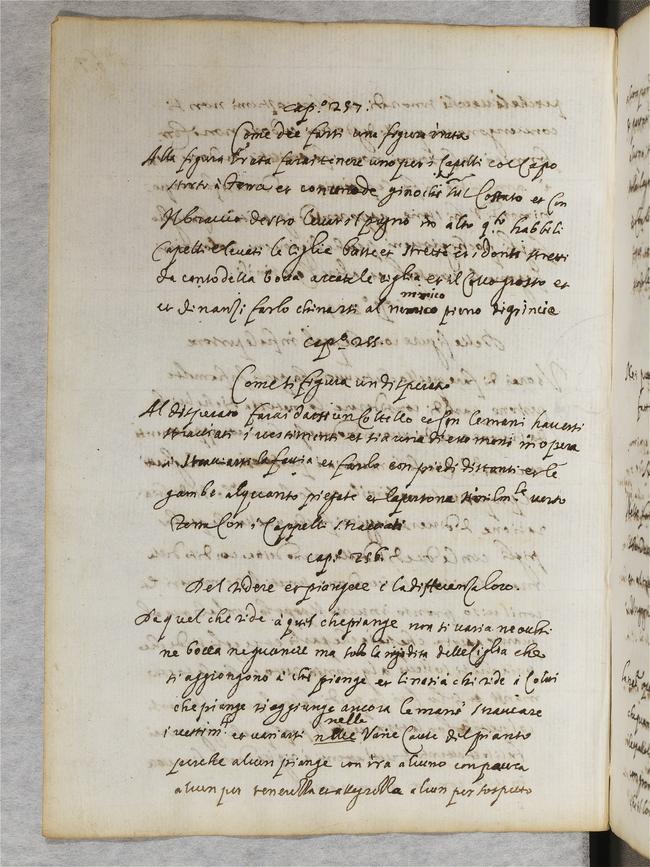 cap.º 257.
Come dee farsi una figura irata
Alla figura irata farai tenere uno per i Capelli col Capo
storto à terra et con uno de ginochi sul Costato et con
Il braccio destro levar il pugno in alto q.to habbi li
Capelli elevati le ciglie basse et strette et i denti stretti
da canto della bocca arcate le ciglia et il Collo grosso et
et dinanzi farlo chinarsi al nemico pieno di grincie
nimico
cap.º 255.
Come si figura un disperato
Al disperato farai darsi un Coltello et con le mani haversi
stracciati i vestimenti et sia una di esse mani in opera
à stracciarsi la faccia et farlo con piedi distanti et le
gambe alquanto piegate et la persona similm.te verso
Terra con i Cappelli stracciati
cap.º 256.
Del ridere et piangere è la differenza loro.
Da quel che ride à quel che piange non si varia ne occhi
ne bocca ne guancie ma solo la rigidità delle Ciglia che
si aggiongono à chi piange et levasi à chi ride à Colui
che piange si aggiunge ancora le mani stracciare
i vestim.ti et variarsi nelle Varie Cause del pianto
nelle
perche alcun piange con ira alcuno con paura
alcun per tenerezza et allegrezza alcun per sospetto